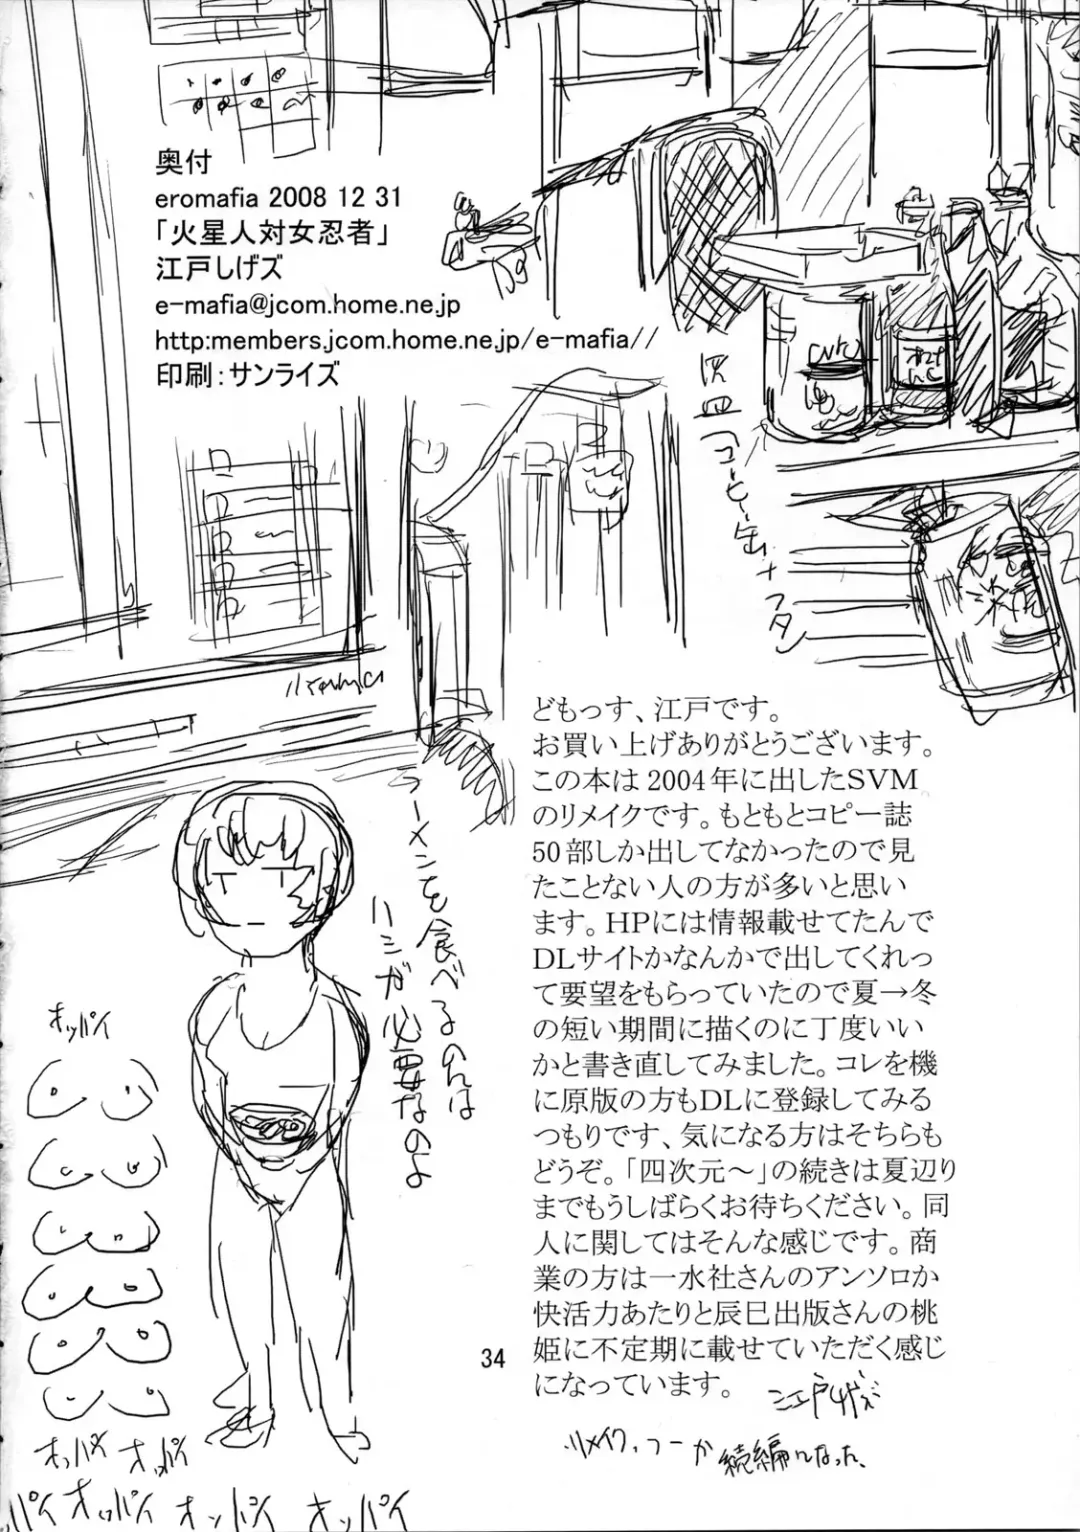 奥付
eromafia 2008 12 31
「火星人対女忍者」
江戸しげズ
e-mafia@jcom.home.ne.jp
http:members.jcom.home.ne.jp/e-mafia//
印刷：サンライズ
灰皿
コーヒー缶+フタ
ラーメンを食べるのは
ハシが必要なのよ
どもっす、江戸です。
お買い上げありがとうございます。
この本は2004年に出したSVM
のリメイクです。もともとコピー誌
50部しか出してなかったので見
たことない人の方が多いと思い
ます。HPには情報載せてたんで
DLサイトかなんかで出してくれっ
て要望をもらっていたので夏→冬
の短い期間に描くのに丁度いい
かと書き直してみました。コレを機
に原版の方もDLに登録してみる
つもりです、気になる方はそちらも
どうぞ。「四次元～」の続きは夏辺り
までもうしばらくお待ちください。同
人に関してはそんな感じです。商
業の方は一水社さんのアンソロか
快活力あたりと辰巳出版さんの桃
姫に不定期に載せていただく感じ
になっています。
江戸しげズ
リメイク、つーか続編になった、
34
オッパイ
オッパイ オッパイ
パイ オッパイ オッパイ オッパイ